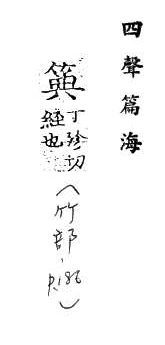 四聲篇海
丁珍切
經也
(竹部,P.186)